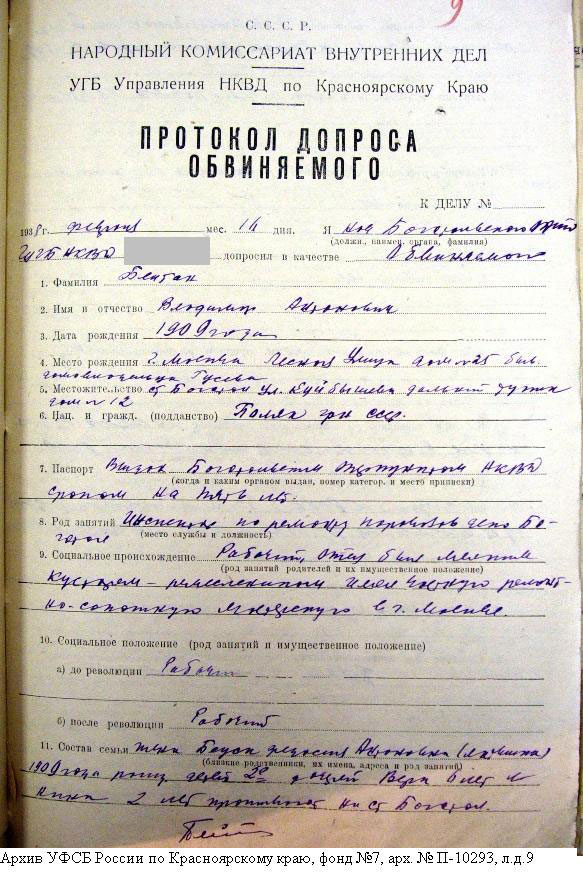 9
С. С. С. Р.
НАРОДНЫЙ КОМИССАРИАТ ВНУТРЕННИХ ДЕЛ
УГБ Управления НКВД по Красноярскому Краю
ПРОТОКОЛ ДОПРОСА
ОБВИНЯЕМОГО
К ДЕЛУ №
1938 г. мес. 14 дня. Я
(должн., наимен. органа, фамилия)
НКВД допросил в качестве Обвиняемого
1. Фамилия
2. Имя и отчество Владимир Антонович
3. Дата рождения 1909 года
4. Место рождения г. Москва Лесная Улица дом № 25 был.
домовладельца Гусева
5. Местожительство ст Боготол ул. Куйбышева дальний тупик
дом № 12
6. Нац. и гражд. (подданство) Поляк гр СССР.
7. Паспорт Выдан НКВД
(когда и каким органом выдан, номер категор. и место приписки)
сроком на пять лет.
8. Род занятий по ремонту паровозов депо Бо-
(место службы и должность)
готол
9. Социальное происхождение Рабочий, отец был мелким
(род занятий родителей и их имущественное положение)
кустарем – ремесленником имел частную ремонт-
но-сапожную мастерскую в г. Москве.
10. Социальное положение (род занятий и имущественное положение)
а) до революции Рабочий
б) после революции Рабочий
11. Состав семьи жена Антоновна
(близкие родственники, их имена, адреса и род занятий)
1909 года дочей Вера 6 лет и
Нина 2 лет проживают на ст Боготол.
Архив УФСБ России по Красноярскому краю, фонд №7, арх. № П-10293, л.д.9